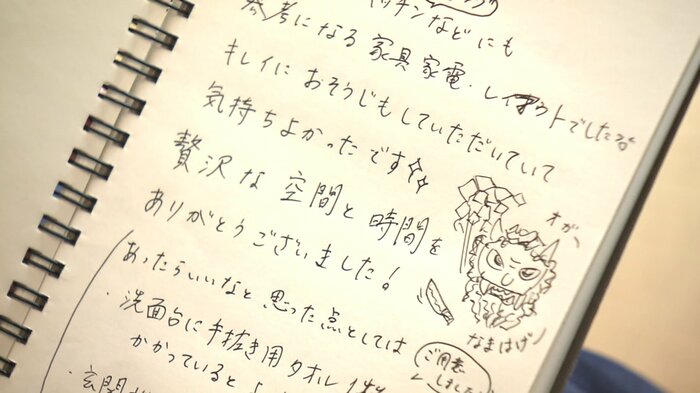 キッチンなどにも
参考になる家具家電・レイアウトでした
キレイにおそうじもしていただいていて
気持ちよかったです
贅沢な空間と時間を
ありがとうございました!
あったらいいなと思った点としては
・洗面台に手拭き用タオル
かかっていると
・玄関
オガ
なまはげ
ご用意
しました